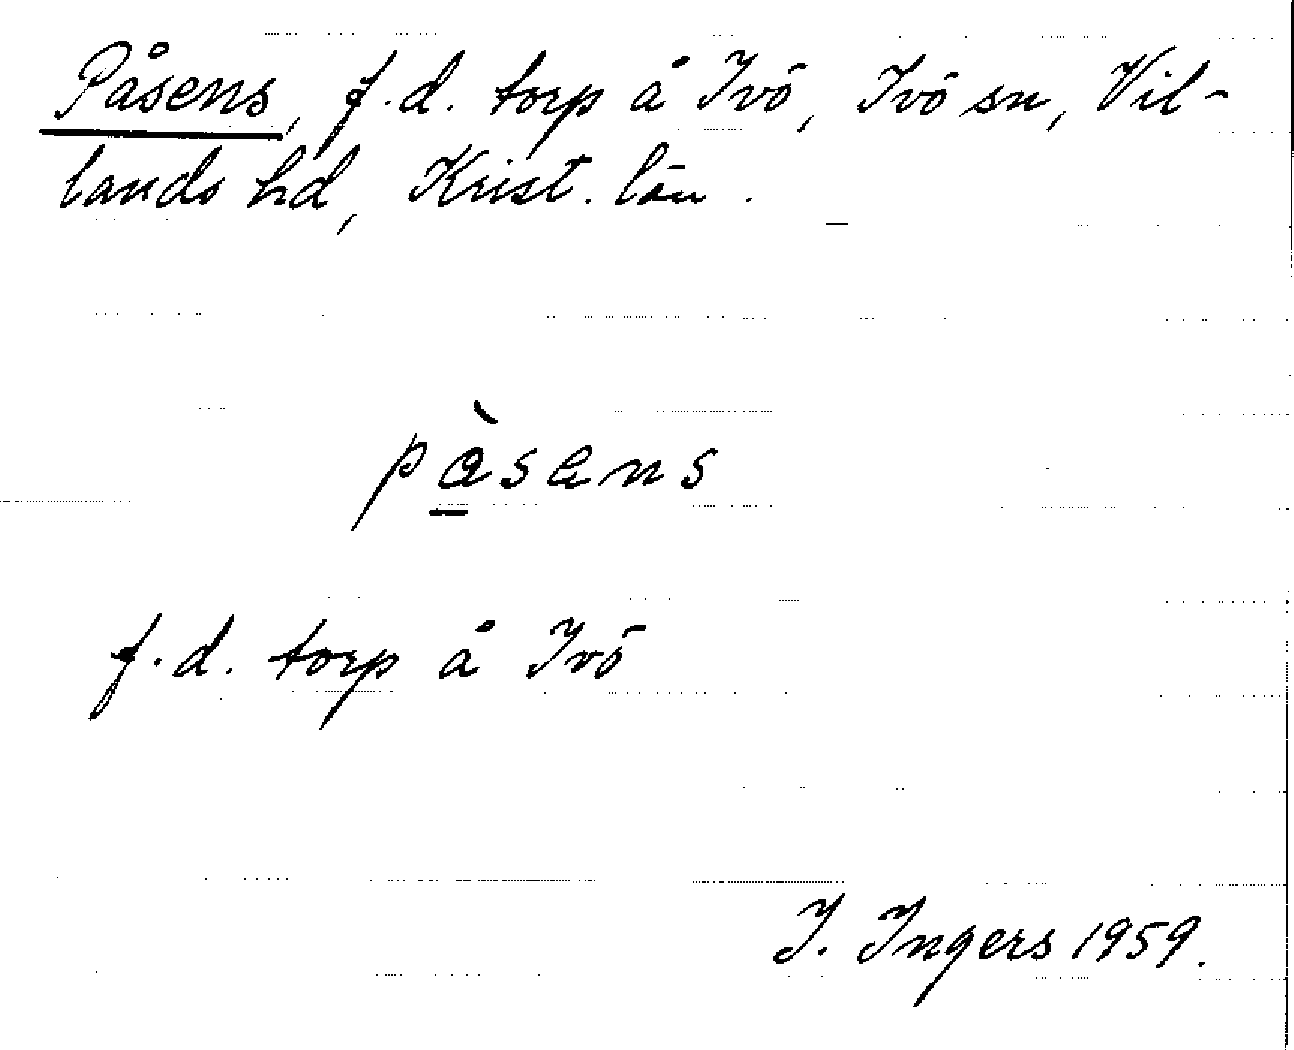 Påsens, f.d. torp å Ivö, Ivö sn, Vil-
lands hd, Krist. län.
pàsens
f.d. torp å Ivö
I. Ingers 1959.